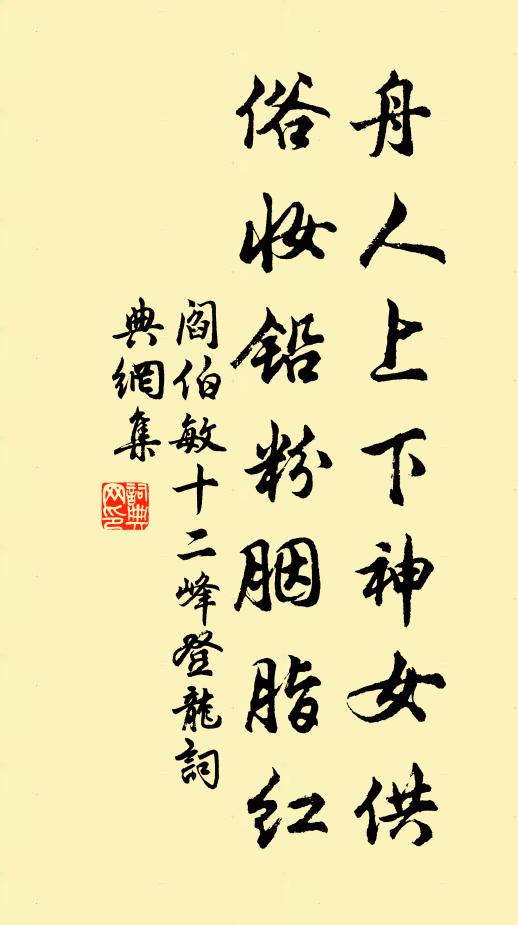 舟人上下神女供
俗妆铅粉胭脂红
阎伯敏十二峰登龙詞
典網集
詞典网印